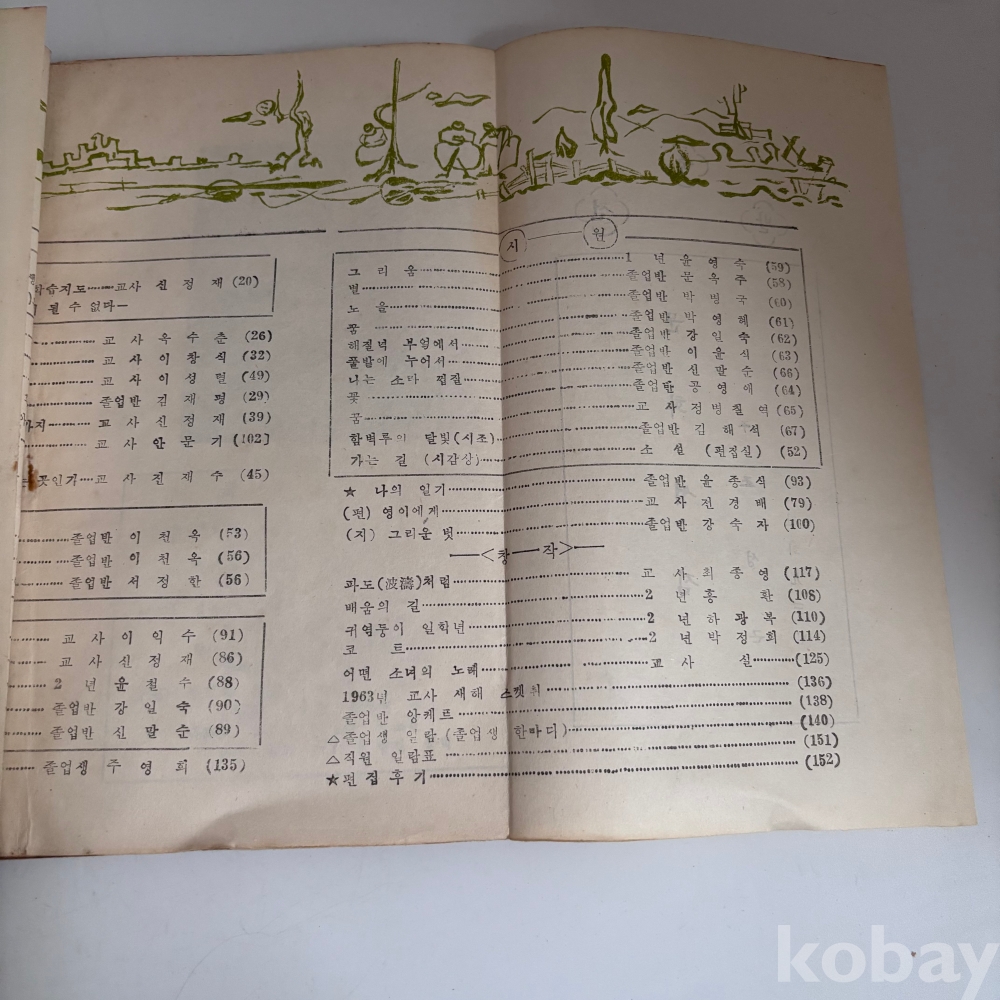 학습지도……교사 신정재 (20)
될 수 없다—
교사 옥수춘 (26)
교사 이창식 (32)
교사 이성렬 (49)
졸업반 김재평 (29)
까지 교사 신정재 (39)
교사 안문기 (102)
곳인가 교사 진재수 (45)
졸업반 이천옥 (53)
졸업반 이천옥 (56)
졸업반 서정한 (56)
교사 이익수 (91)
교사 신정재 (86)
2년 윤철수 (88)
졸업반 강일숙 (90)
졸업반 신말순 (89)
졸업생 주영희 (135)
시 원
그리움 1년 윤영숙 (59)
별 졸업반 문옥주 (58)
노을 졸업반 박명국 (60)
꿈 졸업반 박영혜 (61)
해질녁 부엌에서 졸업반 강일숙 (62)
풀밭에 누어서 졸업반 이윤식 (63)
나는 소라 껍질 졸업반 신말순 (66)
꽃 졸업반 공영애 (64)
꿈 교사 정병칠 역 (65)
함벽루의 달빛(시조) 졸업반 김해석 (67)
가는 길 (시감상) 소설 (편집실) (52)
★ 나의 일기 졸업반 윤종식 (93)
(편) 영이에게 교사 전경배 (79)
(지) 그리운 벗 졸업반 강숙자 (100)
—<창—작>—
파도(波濤)처럼 교사 최종영 (117)
배움의 길 2년 홍환 (108)
귀염둥이 일학년 2년 하광복 (110)
코트 2년 박정희 (114)
어떤 소녀의 노래 교사 실 (125)
1963년 교사 새해 스켓취 (136)
졸업반 앙케트 (138)
△졸업생 일람 (졸업생 한마디) (140)
△직원 일람표 (151)
★편집후기 (152)
kobay